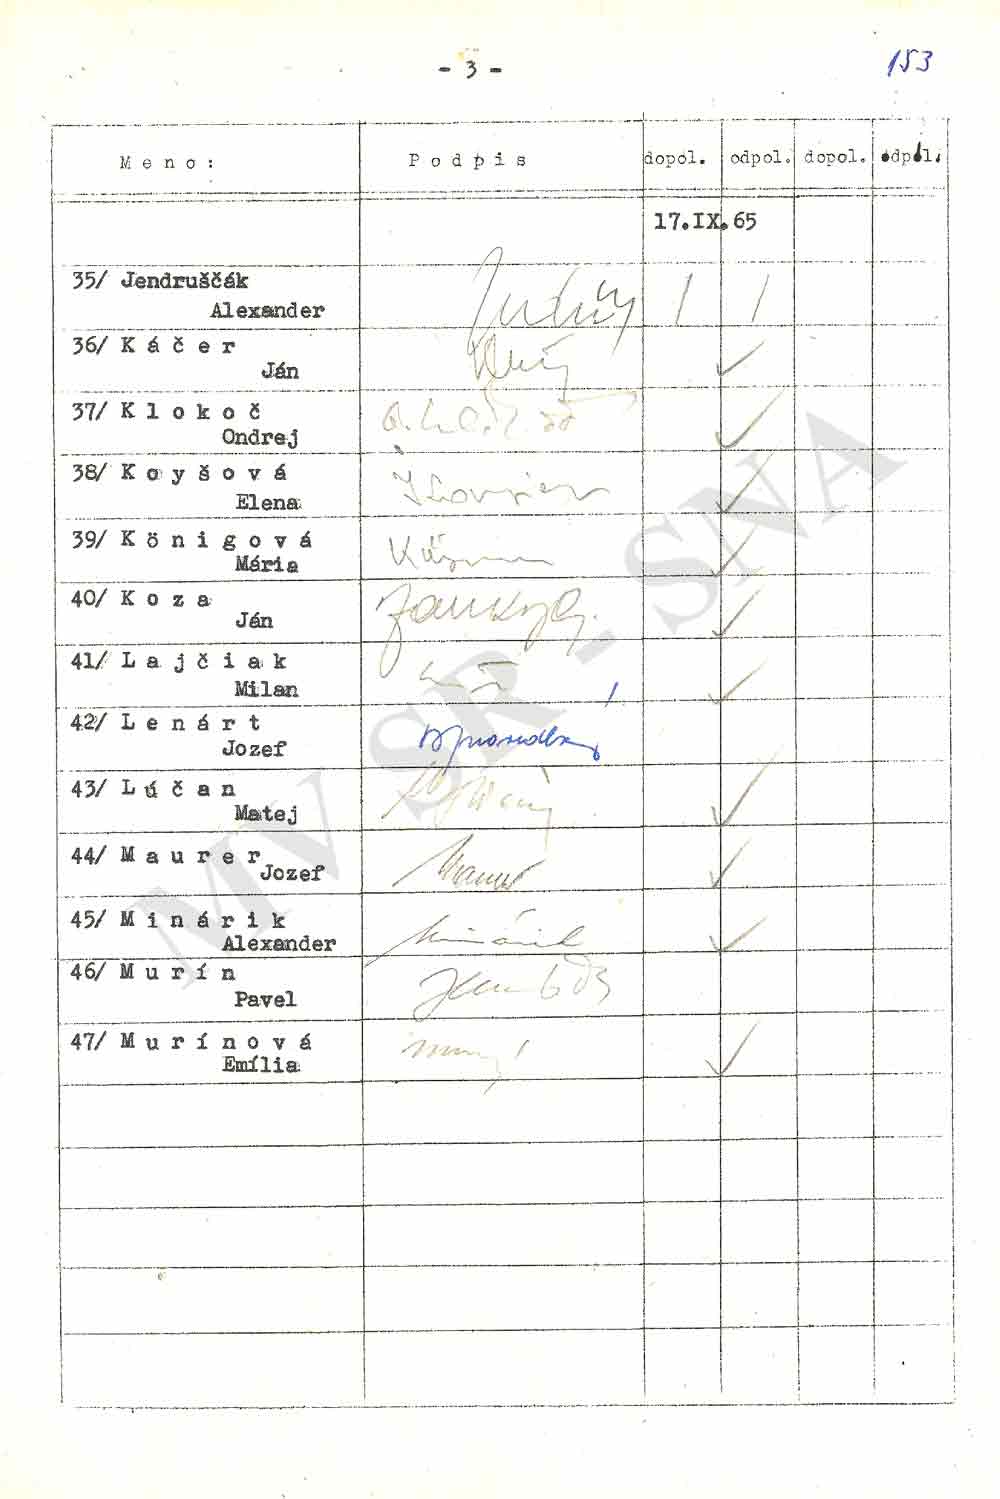 - 3 -
153
M e n o :
P o d p i s
dopol.
odpol.
dopol.
odpol.
17.IX.65
35/ Jendruščák
Alexander
36/ K á č e r
Ján
37/ K l o k o č
Ondrej
38/ K o y š o v á
Elena
39/ K ö n i g o v á
Mária
40/ K o z a
Ján
41/ L a j č i a k
Milan
42/ L e n á r t
Jozef
43/ L ú č a n
Matej
44/ M a u r e r
Jozef
45/ M i n á r i k
Alexander
46/ M u r í n
Pavel
47/ M u r í n o v á
Emília
MV SR - SNA